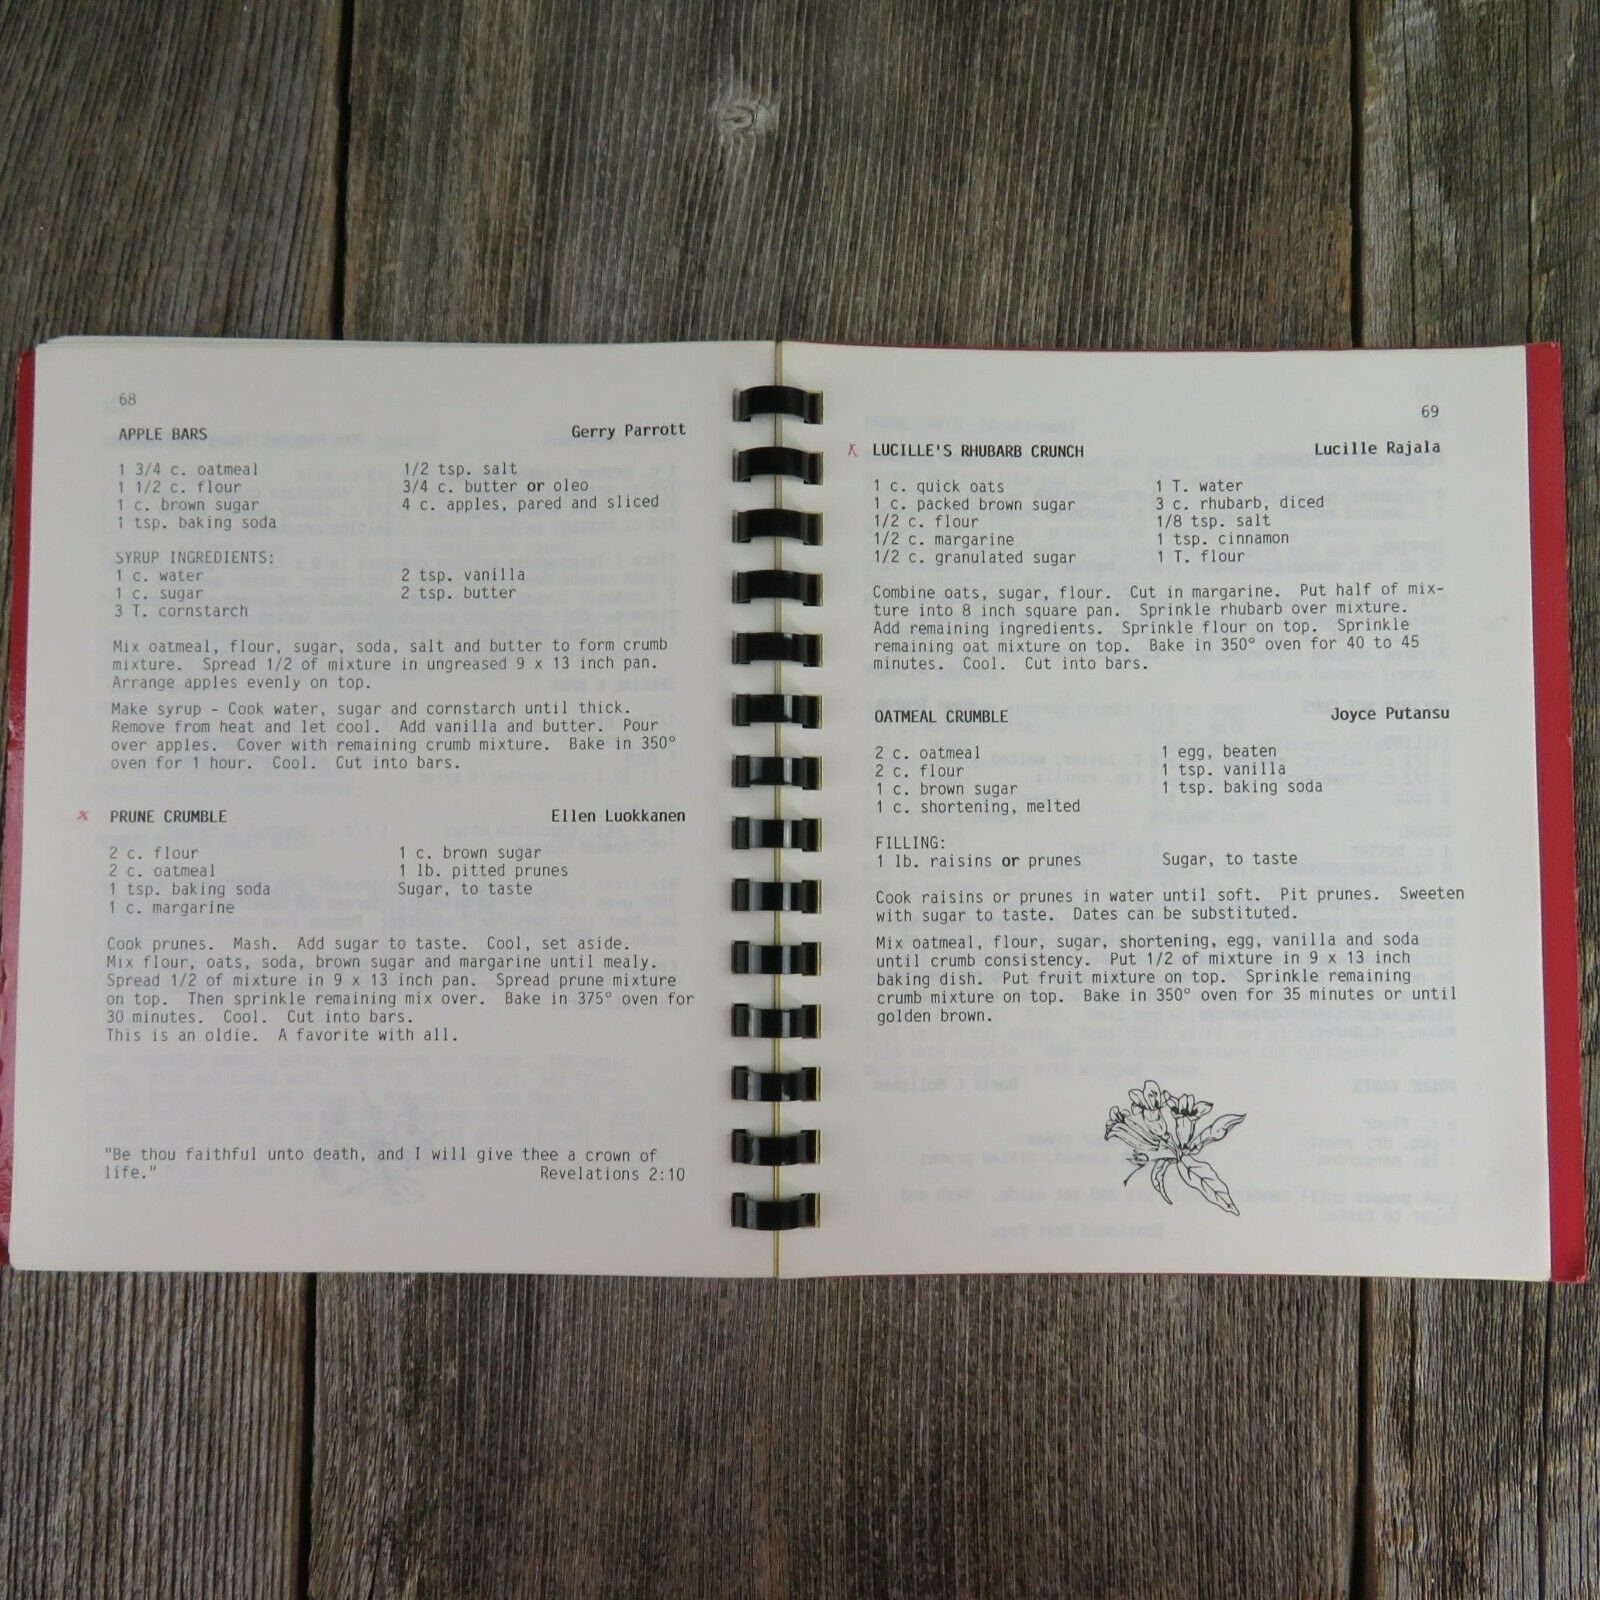 68
APPLE BARS Gerry Parrott
1 3/4 c. oatmeal 1/2 tsp. salt
1 1/2 c. flour 3/4 c. butter or oleo
1 c. brown sugar 4 c. apples, pared and sliced
1 tsp. baking soda
SYRUP INGREDIENTS:
1 c. water 2 tsp. vanilla
1 c. sugar 2 tsp. butter
3 T. cornstarch
Mix oatmeal, flour, sugar, soda, salt and butter to form crumb
mixture. Spread 1/2 of mixture in ungreased 9 x 13 inch pan.
Arrange apples evenly on top.
Make syrup - Cook water, sugar and cornstarch until thick.
Remove from heat and let cool. Add vanilla and butter. Pour
over apples. Cover with remaining crumb mixture. Bake in 350°
oven for 1 hour. Cool. Cut into bars.
x PRUNE CRUMBLE Ellen Luokkanen
2 c. flour 1 c. brown sugar
2 c. oatmeal 1 lb. pitted prunes
1 tsp. baking soda Sugar, to taste
1 c. margarine
Cook prunes. Mash. Add sugar to taste. Cool, set aside.
Mix flour, oats, soda, brown sugar and margarine until mealy.
Spread 1/2 of mixture in 9 x 13 inch pan. Spread prune mixture
on top. Then sprinkle remaining mix over. Bake in 375° oven for
30 minutes. Cool. Cut into bars.
This is an oldie. A favorite with all.
"Be thou faithful unto death, and I will give thee a crown of
life." Revelations 2:10
69
x LUCILLE'S RHUBARB CRUNCH Lucille Rajala
1 c. quick oats 1 T. water
1 c. packed brown sugar 3 c. rhubarb, diced
1/2 c. flour 1/8 tsp. salt
1/2 c. margarine 1 tsp. cinnamon
1/2 c. granulated sugar 1 T. flour
Combine oats, sugar, flour. Cut in margarine. Put half of mix-
ture into 8 inch square pan. Sprinkle rhubarb over mixture.
Add remaining ingredients. Sprinkle flour on top. Sprinkle
remaining oat mixture on top. Bake in 350° oven for 40 to 45
minutes. Cool. Cut into bars.
OATMEAL CRUMBLE Joyce Putansu
2 c. oatmeal 1 egg, beaten
2 c. flour 1 tsp. vanilla
1 c. brown sugar 1 tsp. baking soda
1 c. shortening, melted
FILLING:
1 lb. raisins or prunes Sugar, to taste
Cook raisins or prunes in water until soft. Pit prunes. Sweeten
with sugar to taste. Dates can be substituted.
Mix oatmeal, flour, sugar, shortening, egg, vanilla and soda
until crumb consistency. Put 1/2 of mixture in 9 x 13 inch
baking dish. Put fruit mixture on top. Sprinkle remaining
crumb mixture on top. Bake in 350° oven for 35 minutes or until
golden brown.